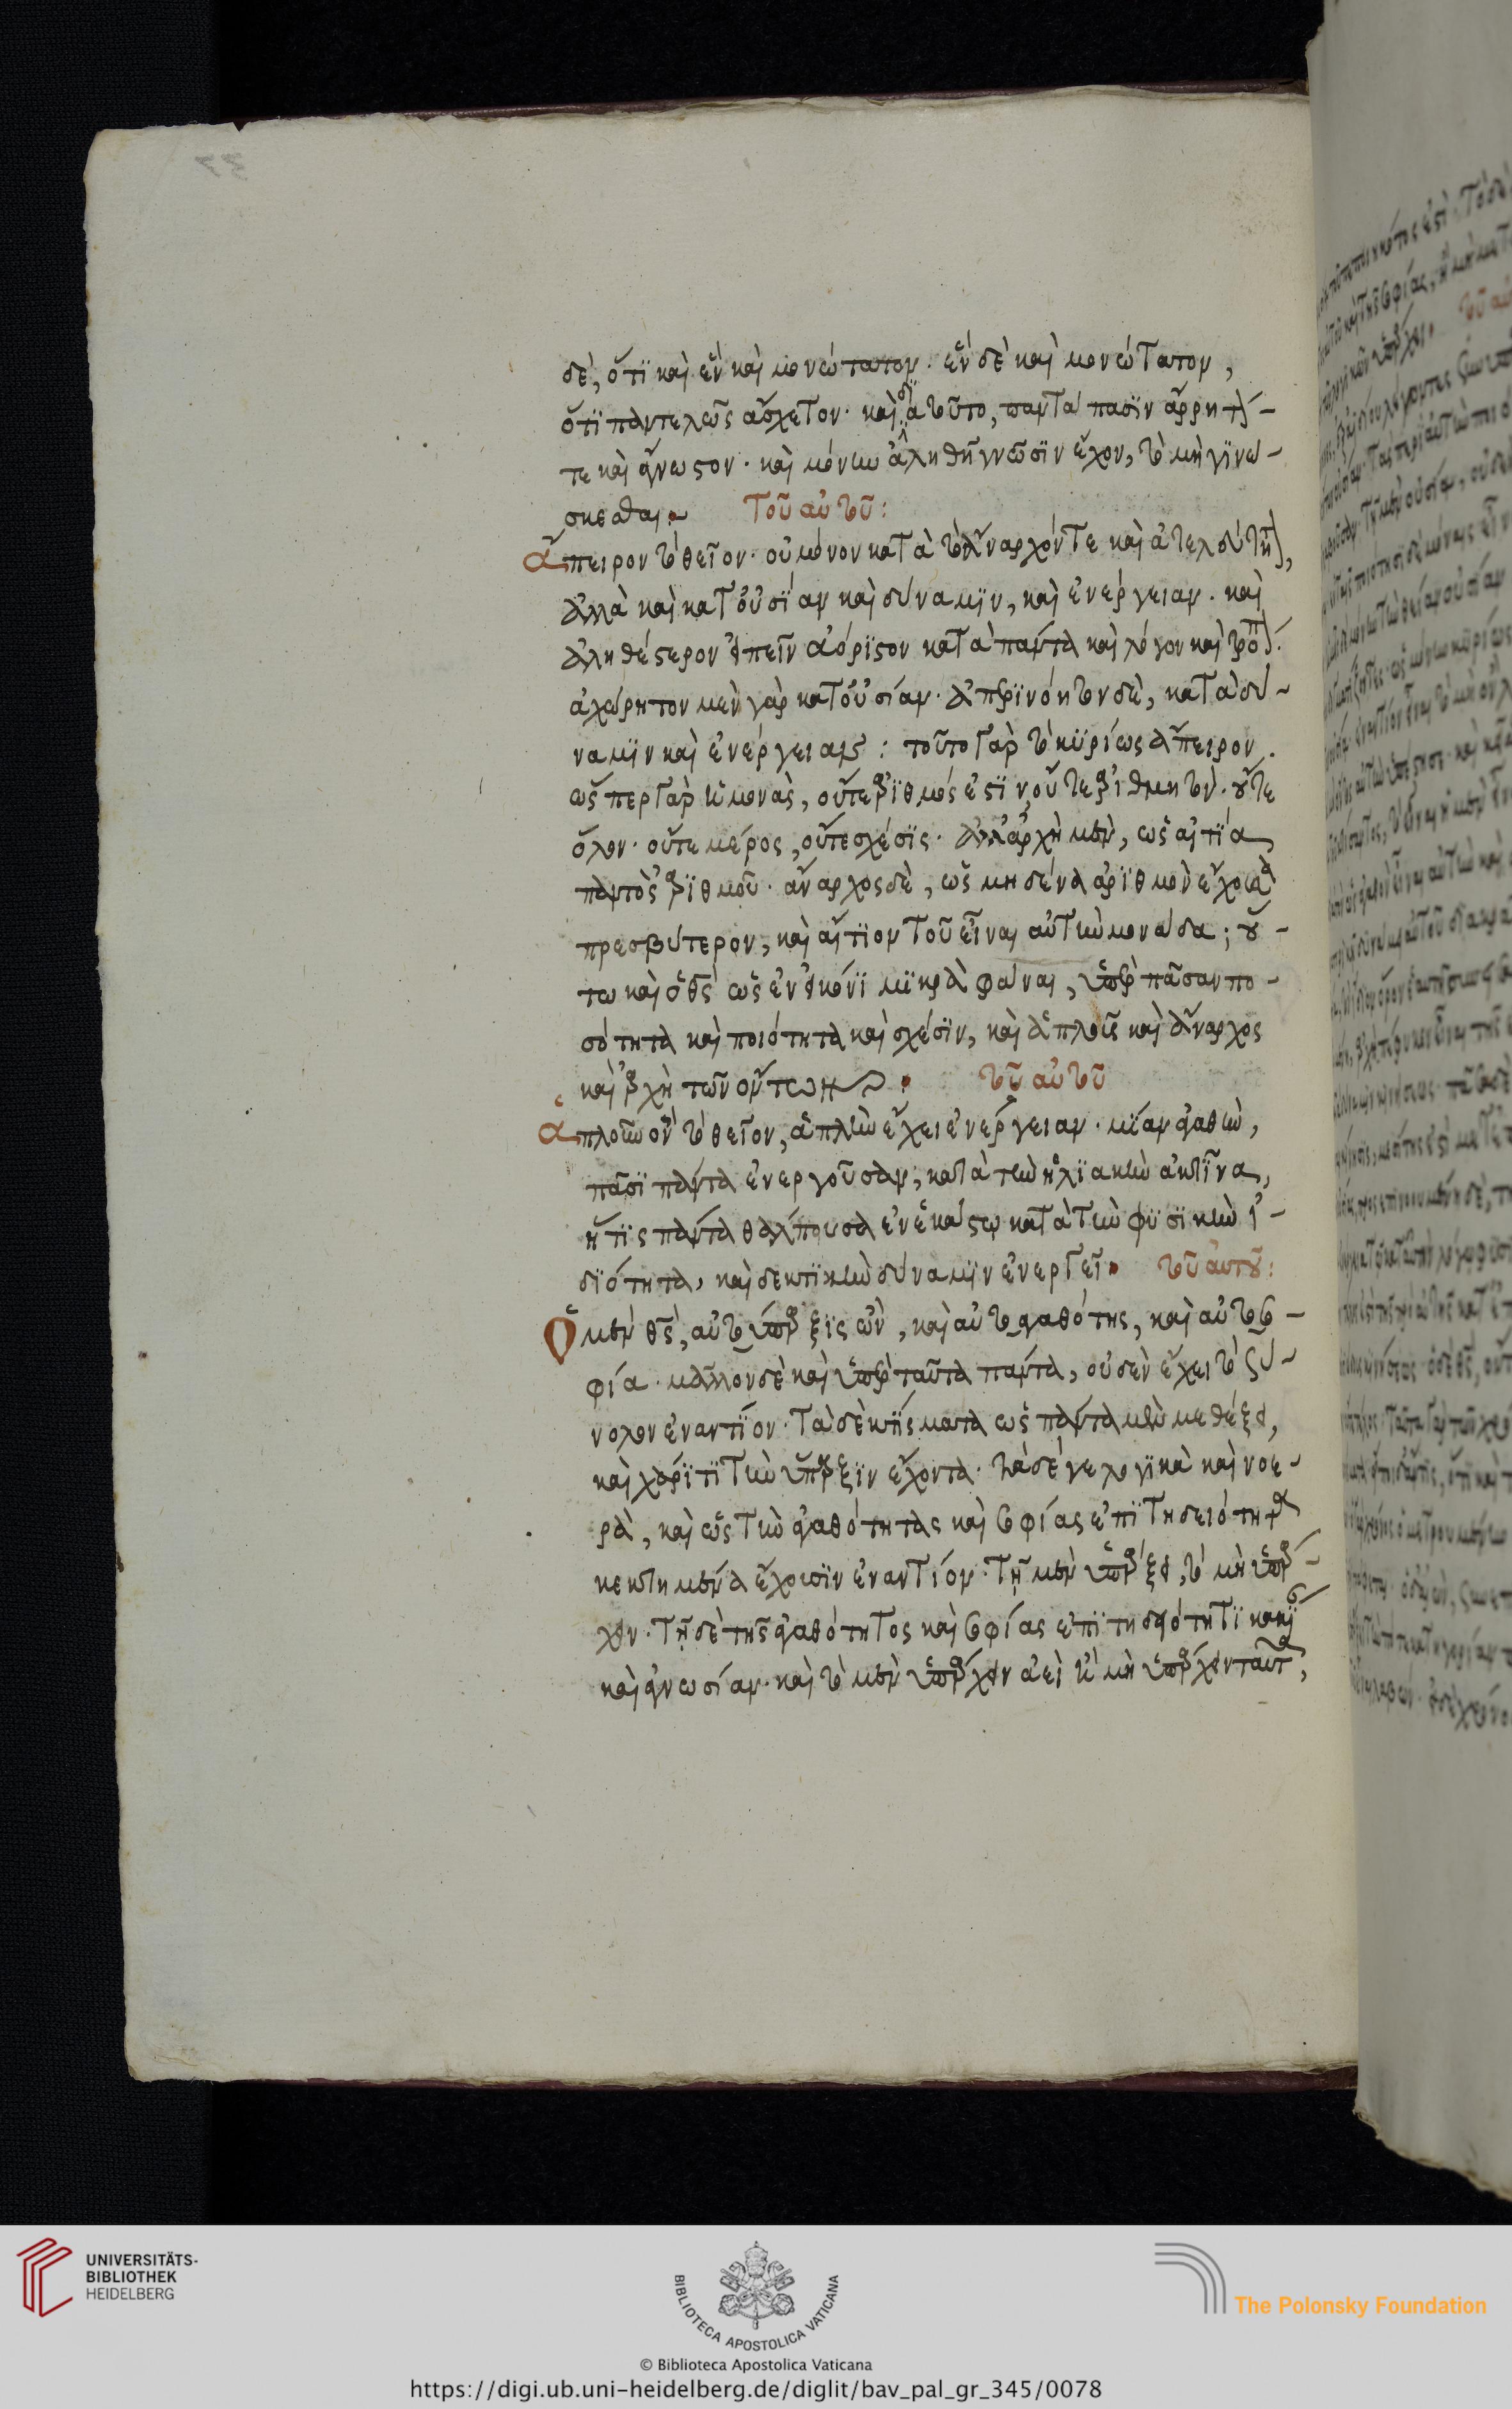 δὲ, ὅτι καὶ ἓν καὶ μονώτατον. ἓν δὲ καὶ μονώτατον,
ὅτι παντελῶς ἄσχετον. καὶ διὰ τοῦτο, παντὰ πασιν ἄρρητόν-
τε καὶ ἄγνωστον. καὶ μόνην ἀληθῆ γνῶσιν ἔχον, τὸ μὴ γινώ-
σκεσθαι. Τοῦ αὐτοῦ:
Ἄπειρον τὸ θεῖον. οὐ μόνον κατὰ τὸ ἄναρχόν τε καὶ ἀτελεύτητον,
ἀλλὰ καὶ κατ' οὐσίαν καὶ δύναμιν, καὶ ἐνέργειαν. καὶ
ἀληθέστερον εἰπεῖν ἀόριστον κατὰ πάντα καὶ λόγον καὶ τρόπον.
ἀχώρητον μὲν γὰρ κατ' οὐσίαν. ἀπερινόητον δὲ, κατὰ δύ-
ναμιν καὶ ἐνέργειαν: τοῦτο γὰρ τὸ κυρίως ἄπειρον.
ὥσπερ γὰρ ἡ μονὰς, οὔτε ἀριθμός ἐστιν, οὔτε ἀριθμητὸν. οὔτε
ὅλον. οὔτε μέρος, οὔτε σχέσις. ἀλλ' ἀρχὴ μὲν, ὡς αἰτία
παντὸς ἀριθμοῦ. ἄναρχος δὲ, ὡς μηδένα ἀριθμὸν ἔχουσα
πρεσβύτερον, καὶ αἴτιον τοῦ εἶναι αὐτὴν μονάδα; οὕ-
τω καὶ ὁ θς ὡς ἐν εἰκόνι μικρᾶ φάναι, ὑπὲρ πᾶσαν πο-
σότητα καὶ ποιότητα καὶ σχέσιν, καὶ ἁπλοῦς καὶ ἄναρχος
καὶ ἀρχὴ τῶν ὄντων. τοῦ αὐτοῦ
Ἁπλοῦν ὂν τὸ θεῖον, ἁπλὴν ἔχει ἐνέργειαν. μίαν ἀγαθὴν,
πᾶσι πάντα ἐνεργοῦσαν, κατὰ τὴν ἡλιακὴν ἀκτῖνα,
ἥτις πάντα θάλπουσα ἐν ἑκάστῳ κατὰ τὴν φυσικὴν ἰ-
διότητα, καὶ δεκτικὴν δύναμιν ἐνεργεῖ. τοῦ αὐτοῦ:
Ὁ μὲν θς, αὐτοΰπαρξις ὢν, καὶ αὐτοαγαθότης, καὶ αὐτοσο-
φία. μᾶλλον δὲ καὶ ὑπὲρ ταῦτα πάντα, οὐδὲν ἔχει τὸ σύ-
νολον ἐναντίον. Τὰ δὲ κτίσματα ὡς πάντα μὲν μεθέξει,
καὶ χάριτι τὴν ὕπαρξιν ἔχοντα. τὰ δέ γε λογικὰ καὶ νοε-
ρὰ, καὶ ὡς τὴν ἀγαθότητας καὶ σοφίας ἐπιτηδειότητα
κεκτημένα ἔχουσιν ἐναντίον. Τῇ μὲν ὑπάρξει, τὸ μὴ ὑπάρ-
χειν. Τῇ δὲ τῆς ἀγαθότητος καὶ σοφίας ἐπιτηδειότητι κακίαν
καὶ ἀγνωσίαν. καὶ τὸ μὲν ὑπάρχειν ἀεὶ ἢ μὴ ὑπάρχειν ταῦτα,
UNIVERSITÄTS-
BIBLIOTHEK
HEIDELBERG
BIBLIOTECA APOSTOLICA VATICANA
The Polonsky Foundation
© Biblioteca Apostolica Vaticana
https://digi.ub.uni-heidelberg.de/diglit/bav_pal_gr_345/0078